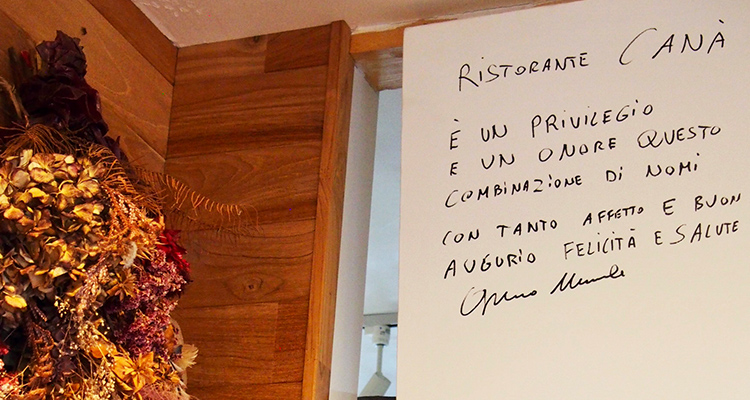 RISTORANTE CANÀ
È UN PRIVILEGIO
E UN ONORE QUESTO
COMBINAZIONE DI NOMI
CON TANTO AFFETTO E BUON
AUGURIO FELICITÀ E SALUTE